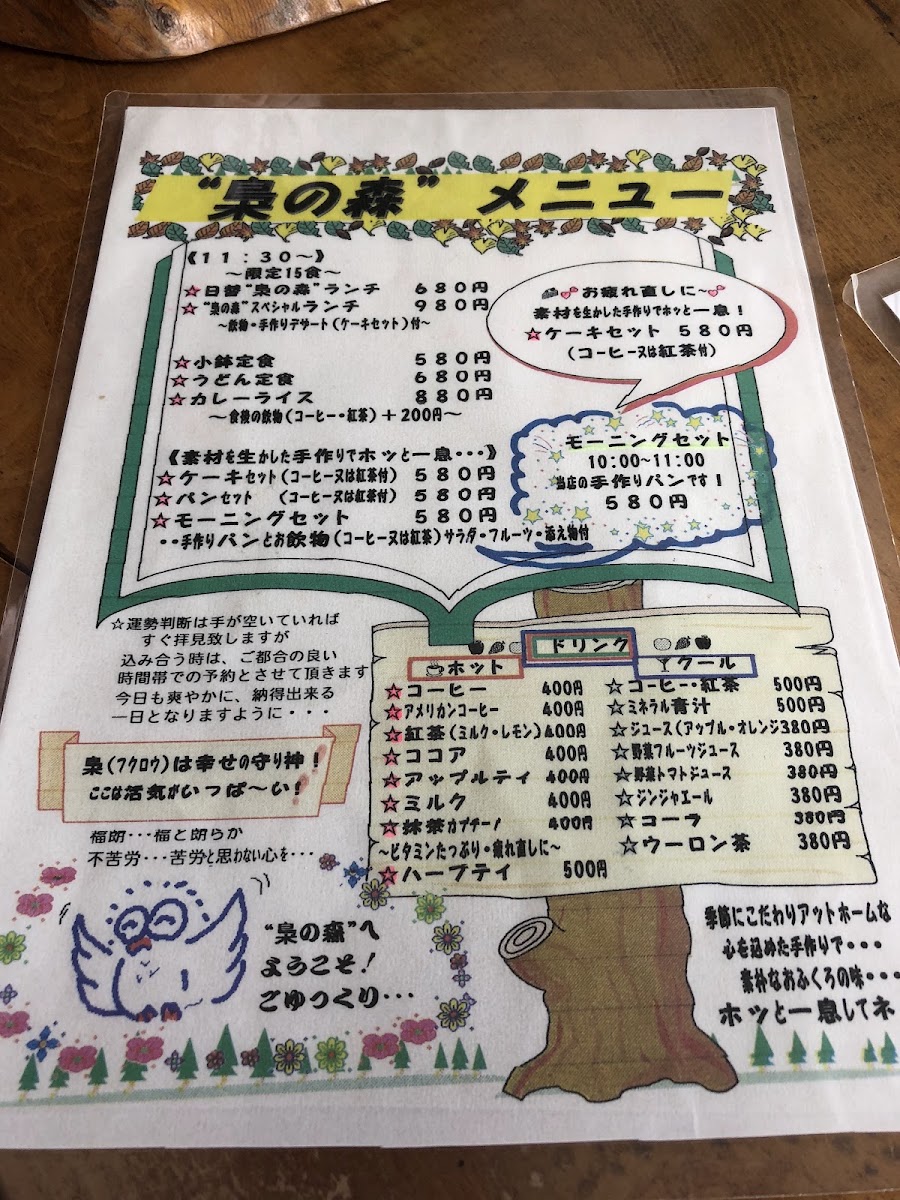 “梟の森”メニュー
《11：30～》
～限定15食～
☆日替“梟の森”ランチ 680円
☆“梟の森”スペシャルランチ 980円
～飲物・手作りデザート(ケーキセット)付～
☆小鉢定食 580円
☆うどん定食 680円
☆カレーライス 880円
～食後の飲物(コーヒー・紅茶)＋200円～
《素材を生かした手作りでホッと一息・・・》
☆ケーキセット(コーヒー又は紅茶付) 580円
☆パンセット (コーヒー又は紅茶付) 580円
☆モーニングセット 580円
・・手作りパンとお飲物(コーヒー又は紅茶)サラダ・フルーツ・添え物付
お疲れ直しに～
素材を生かした手作りでホッと一息！
☆ケーキセット 580円
(コーヒー又は紅茶付)
モーニングセット
10:00~11:00
当店の手作りパンです！
580円
☆運勢判断は手が空いていれば
すぐ拝見致しますが
込み合う時は、ご都合の良い
時間帯での予約とさせて頂きます
今日も爽やかに、納得出来る
一日となりますように・・・
梟(フクロウ)は幸せの守り神！
ここは活気がいっぱ～い！
福朗・・・福と朗らか
不苦労・・・苦労と思わない心を・・・
“梟の森”へ
ようこそ！
ごゆっくり・・・
ドリンク
ホット
☆コーヒー 400円
☆アメリカンコーヒー 400円
☆紅茶(ミルク・レモン)400円
☆ココア 400円
☆アップルティ 400円
☆ミルク 400円
☆抹茶カプチーノ 400円
～ビタミンたっぷり・疲れ直しに～
☆ハーブティ 500円
クール
☆コーヒー・紅茶 500円
☆ミネラル青汁 500円
☆ジュース(アップル・オレンジ380円
☆野菜フルーツジュース 380円
☆野菜トマトジュース 380円
☆ジンジャエール 380円
☆コーラ 380円
☆ウーロン茶 380円
季節にこだわりアットホームな
心を込めた手作りで・・・
素朴なおふくろの味・・・
ホッと一息してネ